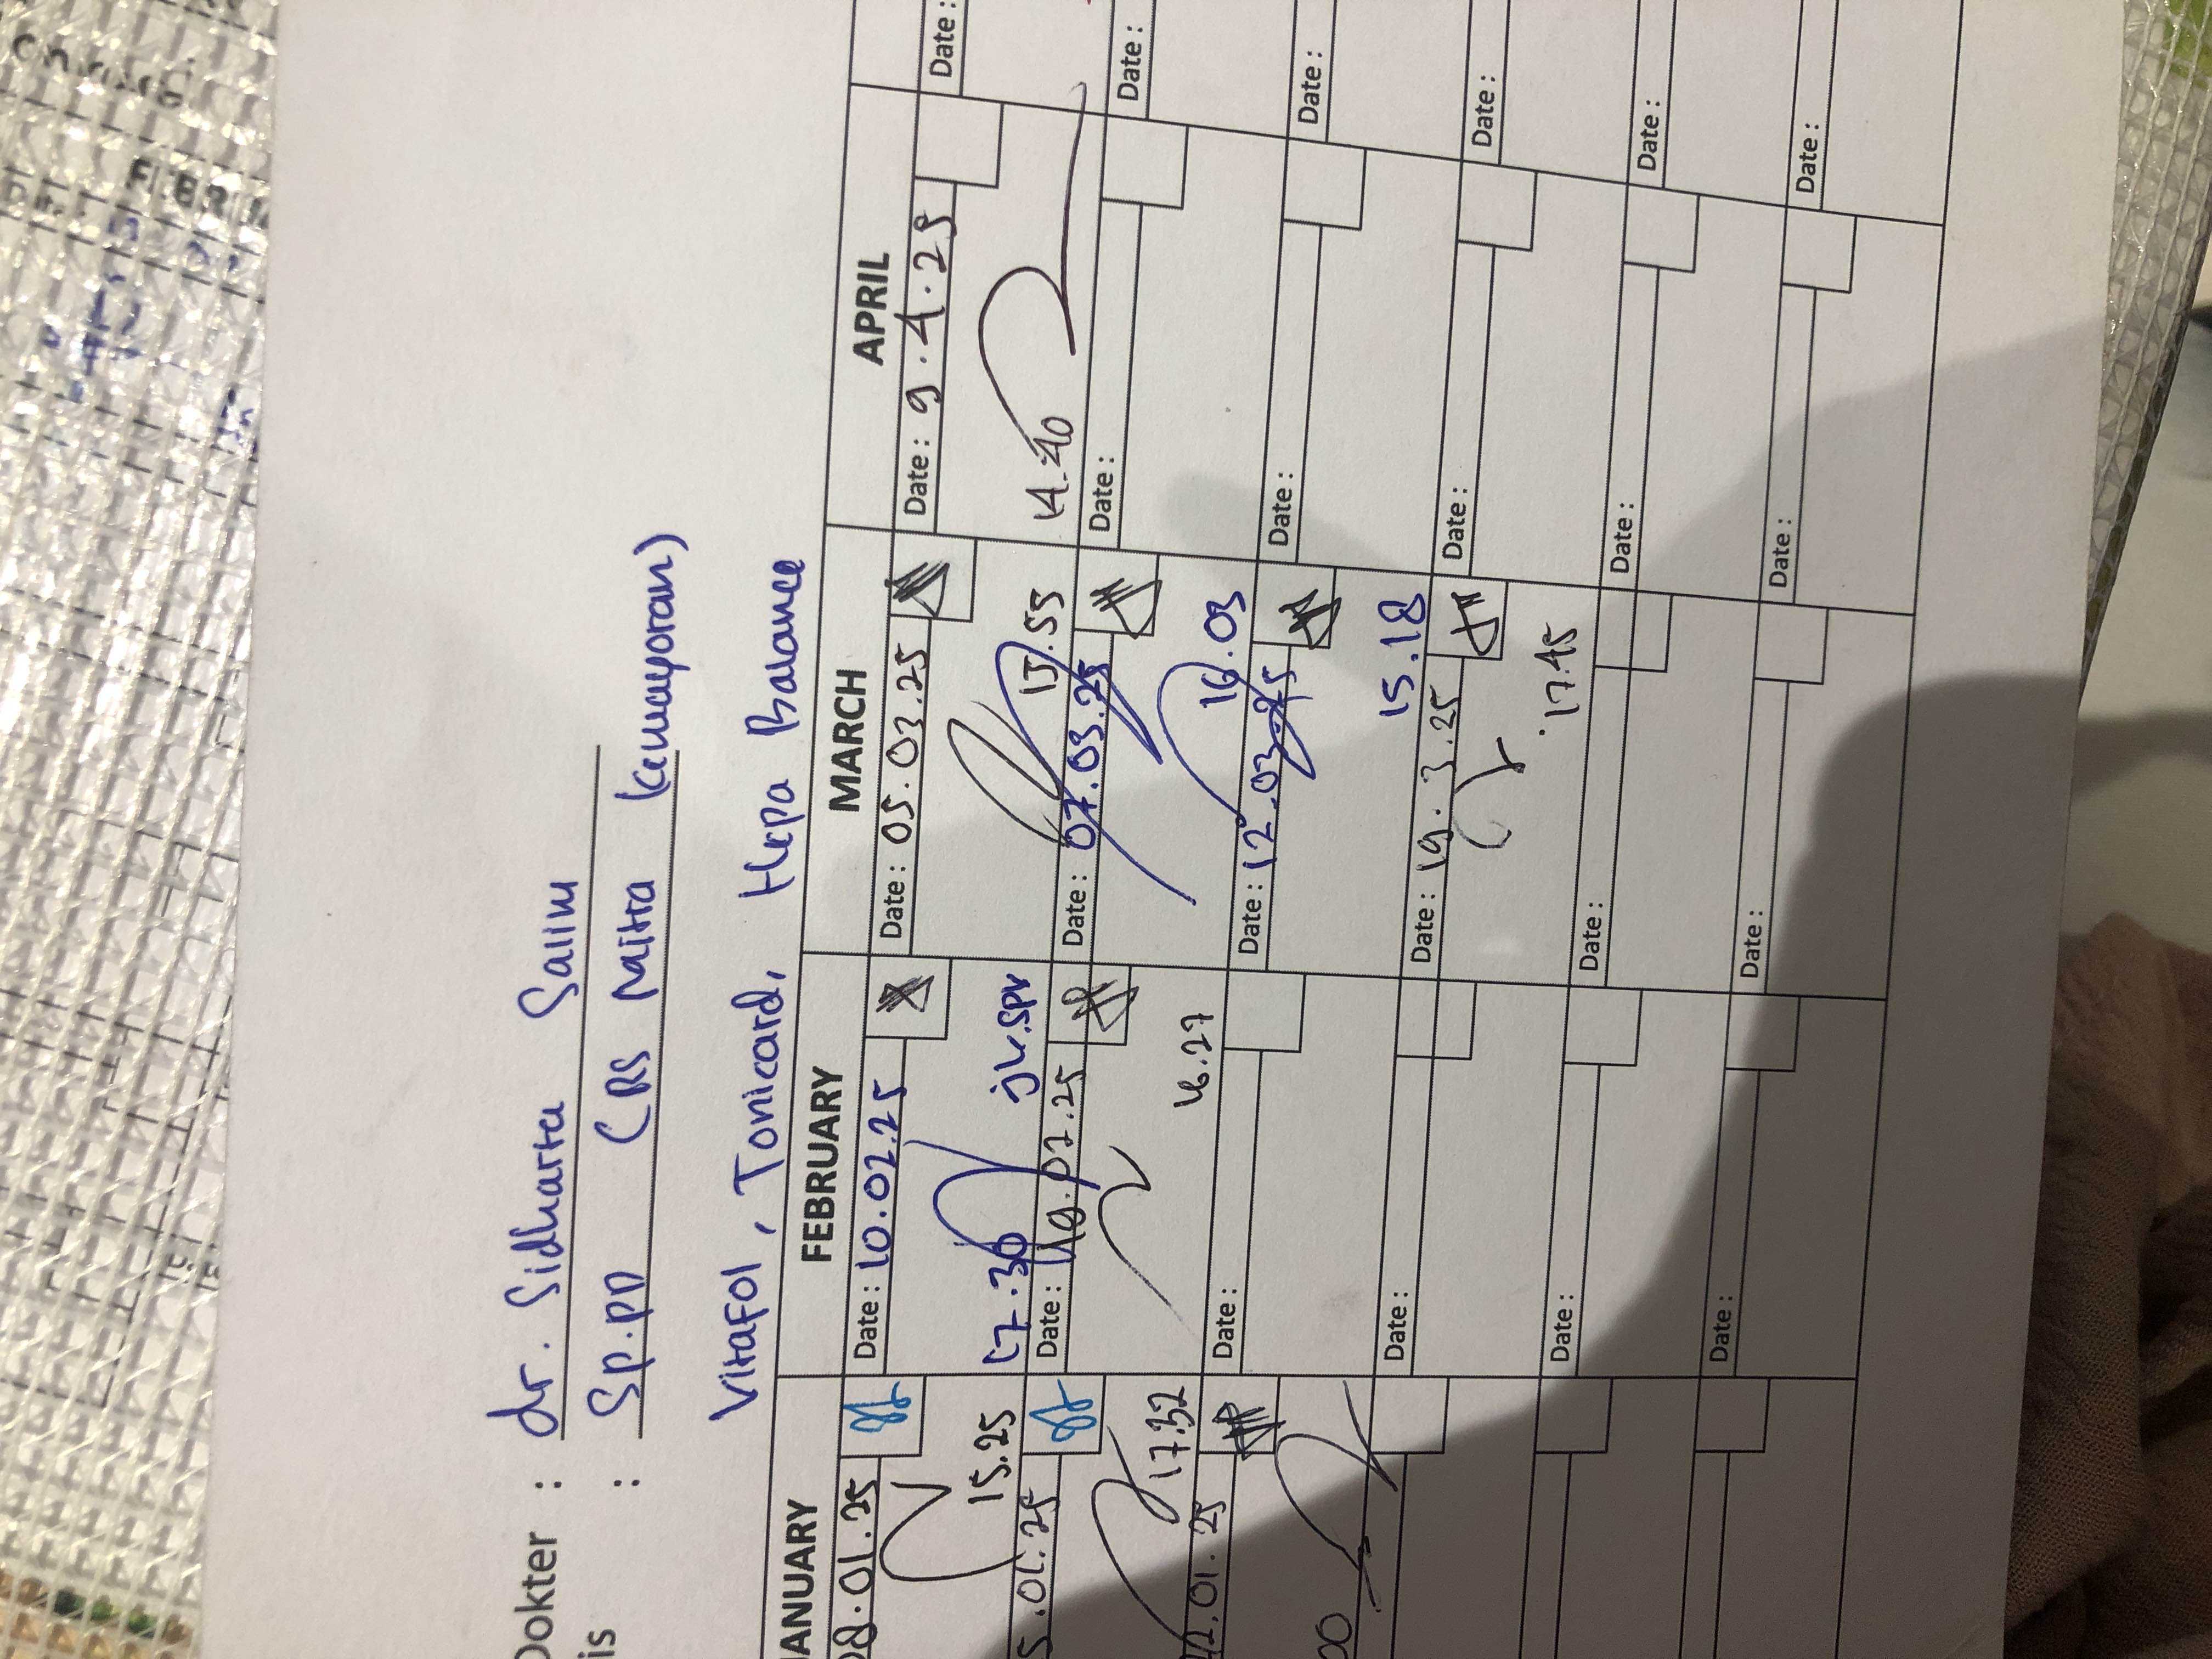 Dokter : dr. Sidharta Salim
is : Sp.PD (RS Mitra Kemayoran)
Vitafol, Tonicard, Hepa Balance
ANUARY FEBRUARY MARCH APRIL
08.01.25 Date : 10.02.25 Date : 05.03.25 Date : 9.4.25 Date :
15.25 17.30 jv.spv 15.55 14.40
5.01.25 Date : 19.02.25 Date : 07.03.25 Date : Date :
17.32 16.27 16.03
22.01.25 Date : Date : 12.03.25 Date : Date :
00 15.18
Date : Date : 19.3.25 Date : Date :
17.45
Date : Date : Date : Date :
Date : Date : Date : Date :